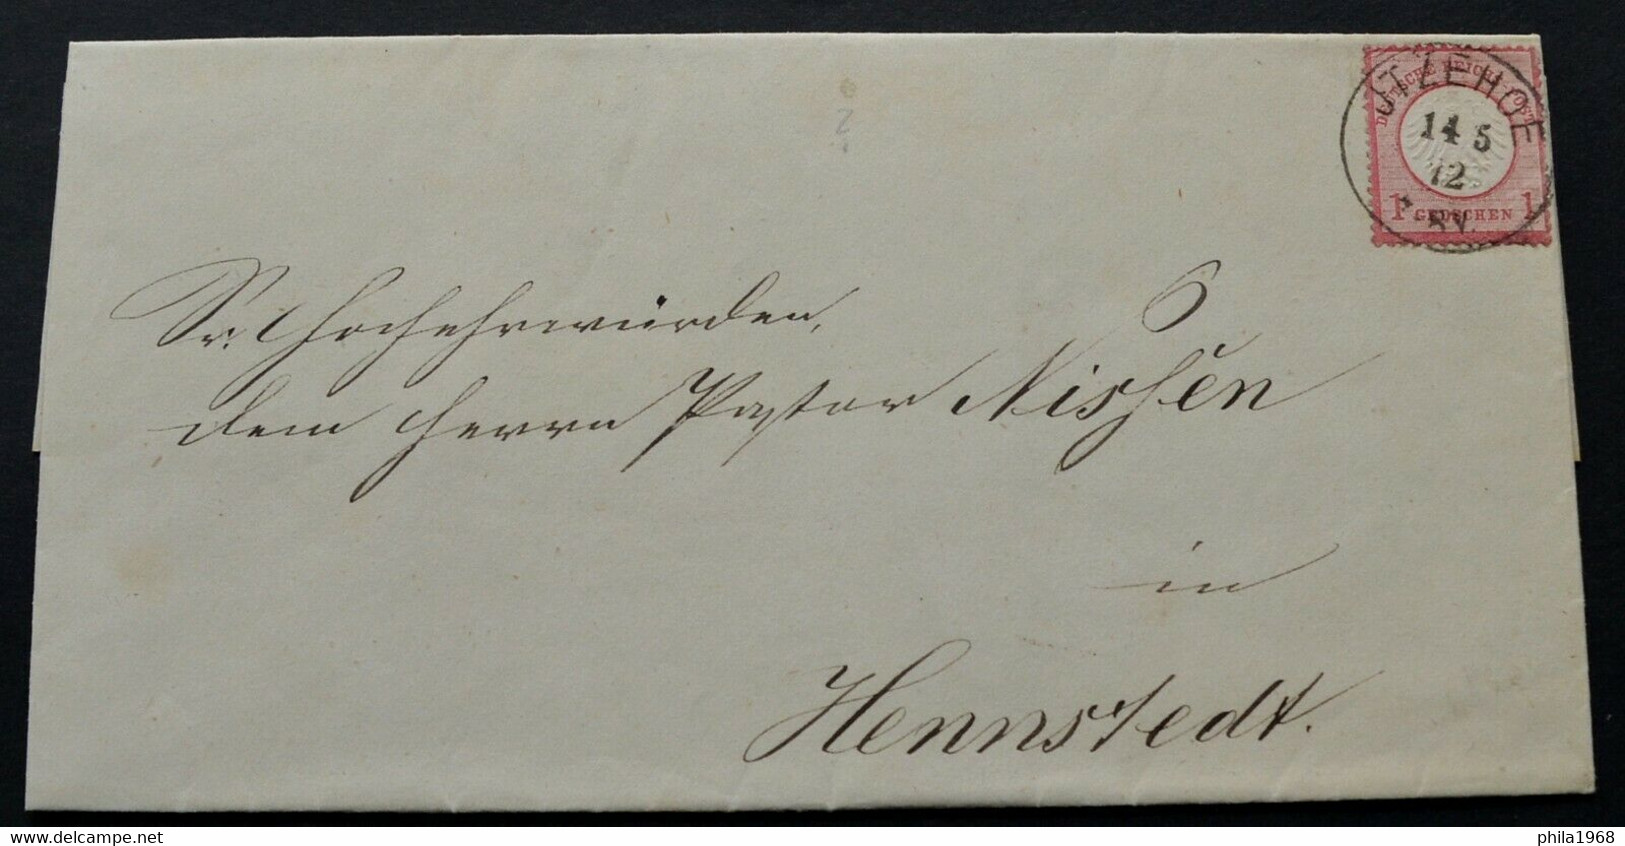 DEUTSCHE REICHS-POST
1 GROSCHEN 1
ITZEHOE
14 5
72
Sr. Hochehrwürden,
dem Herrn Pastor Nissen
in
Hennstedt.
www.delcampe.net
phila1968